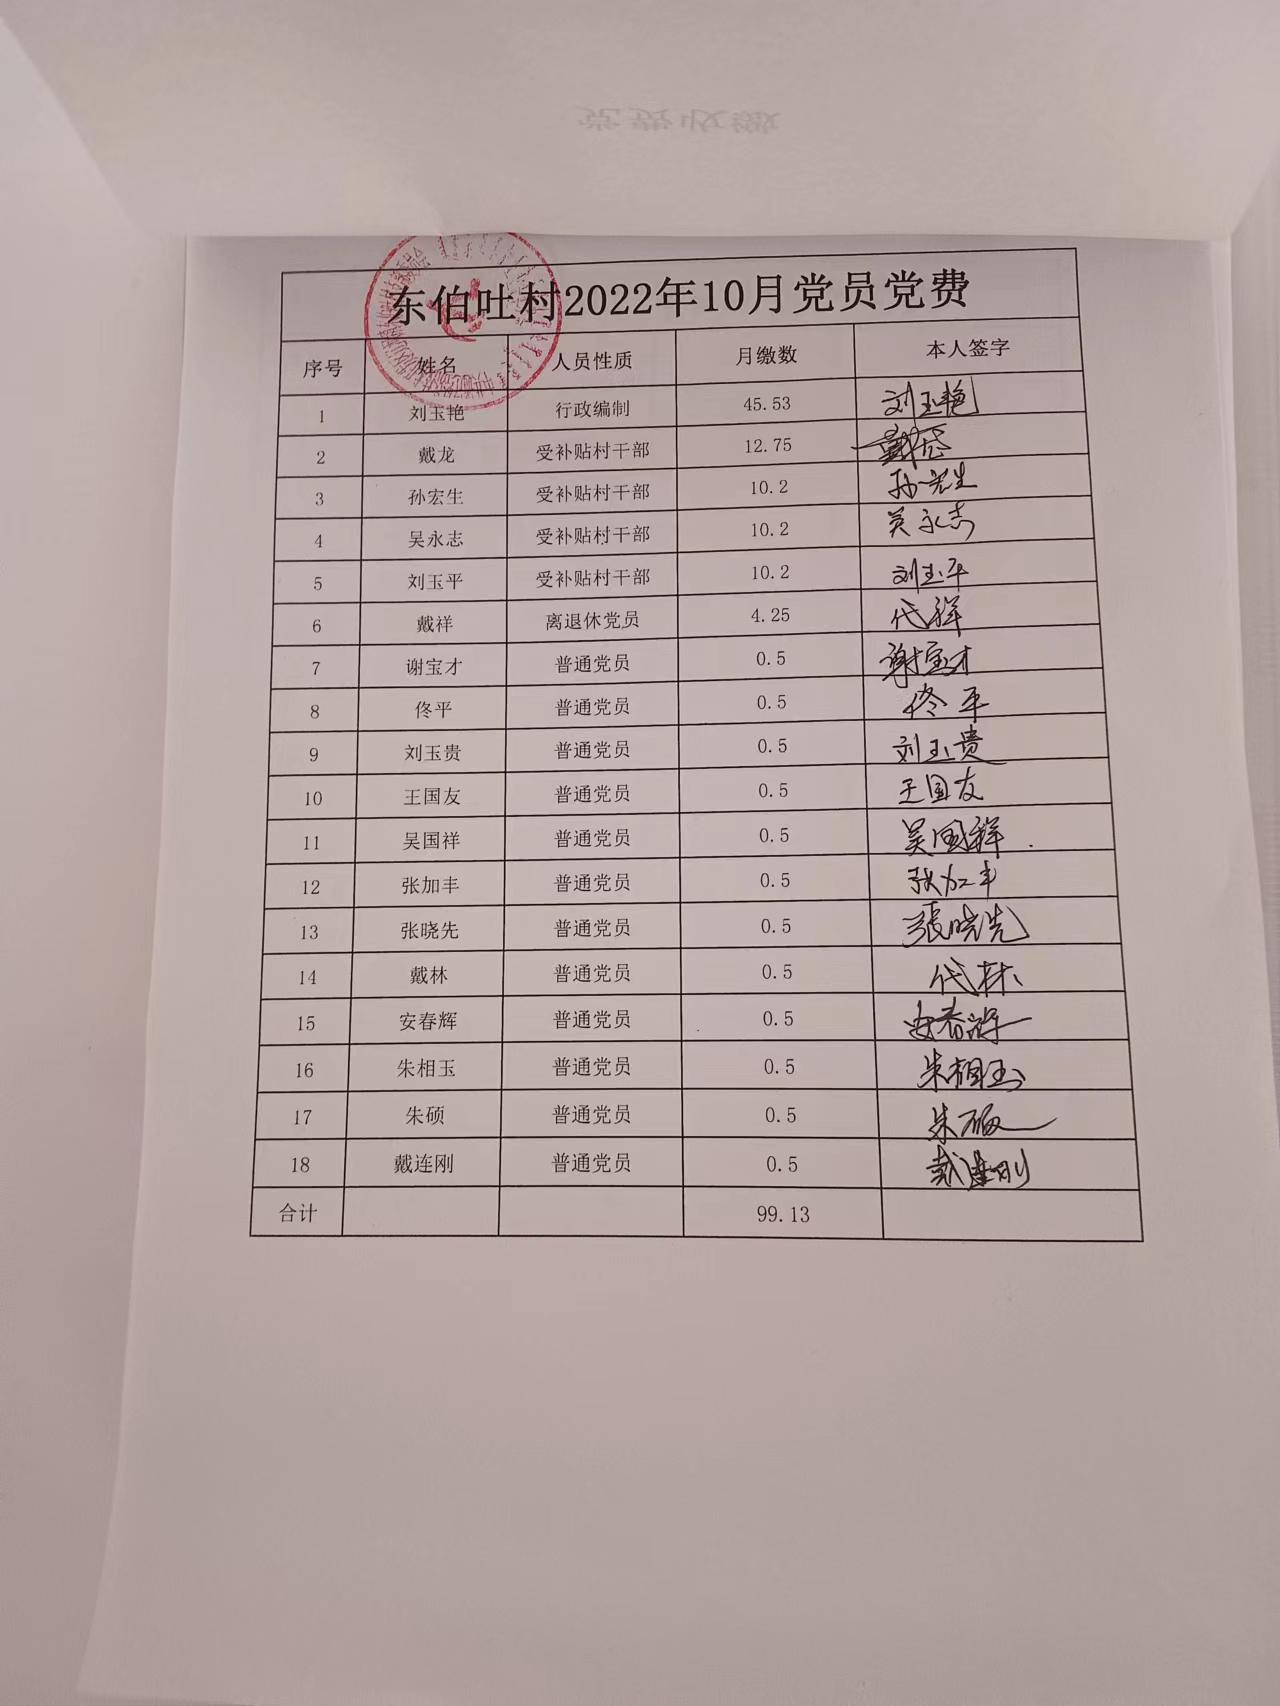 党费收缴
东伯吐村2022年10月党员党费
序号 姓名 人员性质 月缴数 本人签字
1 刘玉艳 行政编制 45.53 刘玉艳
2 戴龙 受补贴村干部 12.75 戴龙
3 孙宏生 受补贴村干部 10.2 孙宏生
4 吴永志 受补贴村干部 10.2 吴永志
5 刘玉平 受补贴村干部 10.2 刘玉平
6 戴祥 离退休党员 4.25 代祥
7 谢宝才 普通党员 0.5 谢宝才
8 佟平 普通党员 0.5 佟平
9 刘玉贵 普通党员 0.5 刘玉贵
10 王国友 普通党员 0.5 王国友
11 吴国祥 普通党员 0.5 吴国祥
12 张加丰 普通党员 0.5 张加丰
13 张晓先 普通党员 0.5 張晓先
14 戴林 普通党员 0.5 代林
15 安春辉 普通党员 0.5 安春辉
16 朱相玉 普通党员 0.5 朱相玉
17 朱硕 普通党员 0.5 朱硕
18 戴连刚 普通党员 0.5 戴连刚
合计 99.13